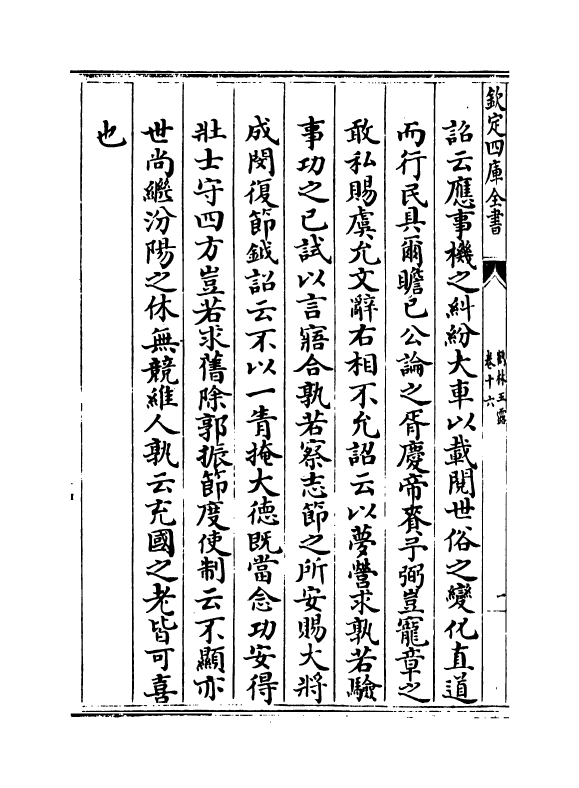 欽定四庫全書
鶴林玉露
卷十六
一
詔云應事機之糾紛大車以載閱世俗之變化直道
而行民具爾瞻已公論之胥慶帝賚予弼豈寵章之
敢私賜虞允文辭右相不允詔云以夢營求孰若驗
事功之已試以言寤合孰若察志節之所安賜大將
成閔復節鉞詔云不以一眚掩大德既當念功安得
壯士守四方豈若求舊除郭振節度使制云不顯亦
世尚繼汾陽之休無競維人孰云充國之老皆可喜
也